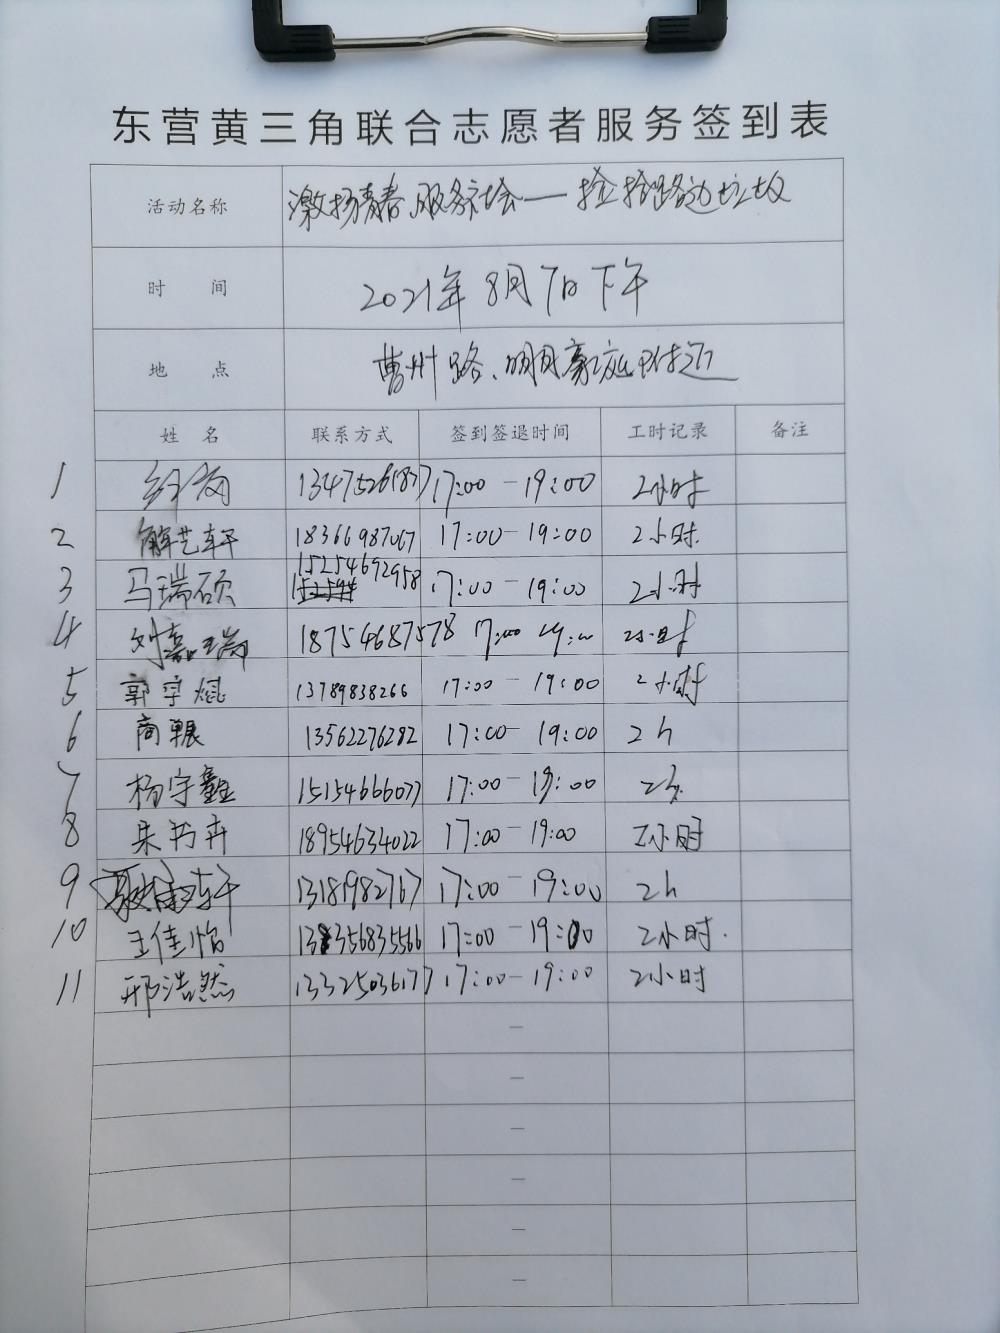 东营黄三角联合志愿者服务签到表
活动名称 激扬青春、服务社会——捡拾路边垃圾
时 间 2021年8月7日下午
地 点 曹州路、明月豪庭附近
姓 名 联系方式 签到签退时间 工时记录 备注
1 13475261877 17:00 - 19:00 2小时
2 解艺轩 18366987067 17:00 - 19:00 2小时
3 马瑞硕 15254692958 17:00 - 19:00 2小时
4 刘嘉瑞 18754687578 17:00 19:00 2小时
5 郭宇焜 13789838266 17:00 - 19:00 2小时
6 商辗 13562276282 17:00 - 19:00 2h
7 杨宇鑫 15154666077 17:00 - 19:00 2h
8 朱书卉 18954634022 17:00 - 19:00 2小时
9 轩 13181982767 17:00 - 19:00 2h
10 王佳怡 17:00 - 19:00 2小时.
11 邢浩然 13325036177 17:00 - 19:00 2小时
—
—
—
—
—
—